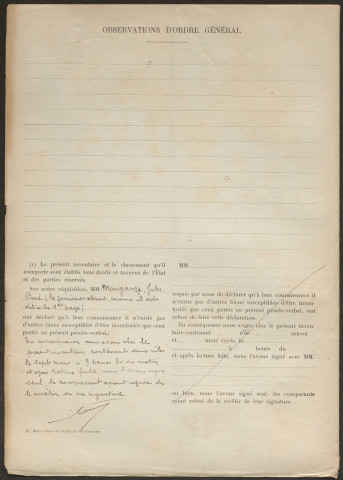 OBSERVATIONS D'ORDRE GÉNÉRAL
(1) Le présent inventaire et le classement qu'il
comporte sont établis tous droits et moyens de l'État
et des parties réservés.
Sur notre réquisition, MM.
Curé
ont déclaré qu'à leur connaissance il n'existe pas
d'autres biens susceptibles d'être inventoriés que ceux
portés au présent procès-verbal.
En conséquence nous avons clos le
présent inventaire contenant
et après lecture faite nous l'avons signé
seul, le comparant ayant refusé de
le revêtir de sa signature
MM.
requis par nous de déclarer qu'à leur connaissance il
n'existe pas d'autres biens susceptibles d'être inven-
toriés que ceux portés au présent procès-verbal, ont
refusé de faire cette déclaration.
En conséquence nous avons clos le présent inven-
taire contenant rôle, renvoi
et mots rayés, le
à heure du
et après lecture faite, nous l'avons signé avec MM.
ou bien, nous l'avons signé seul, les comparants
ayant refusé de le revêtir de leur signature.